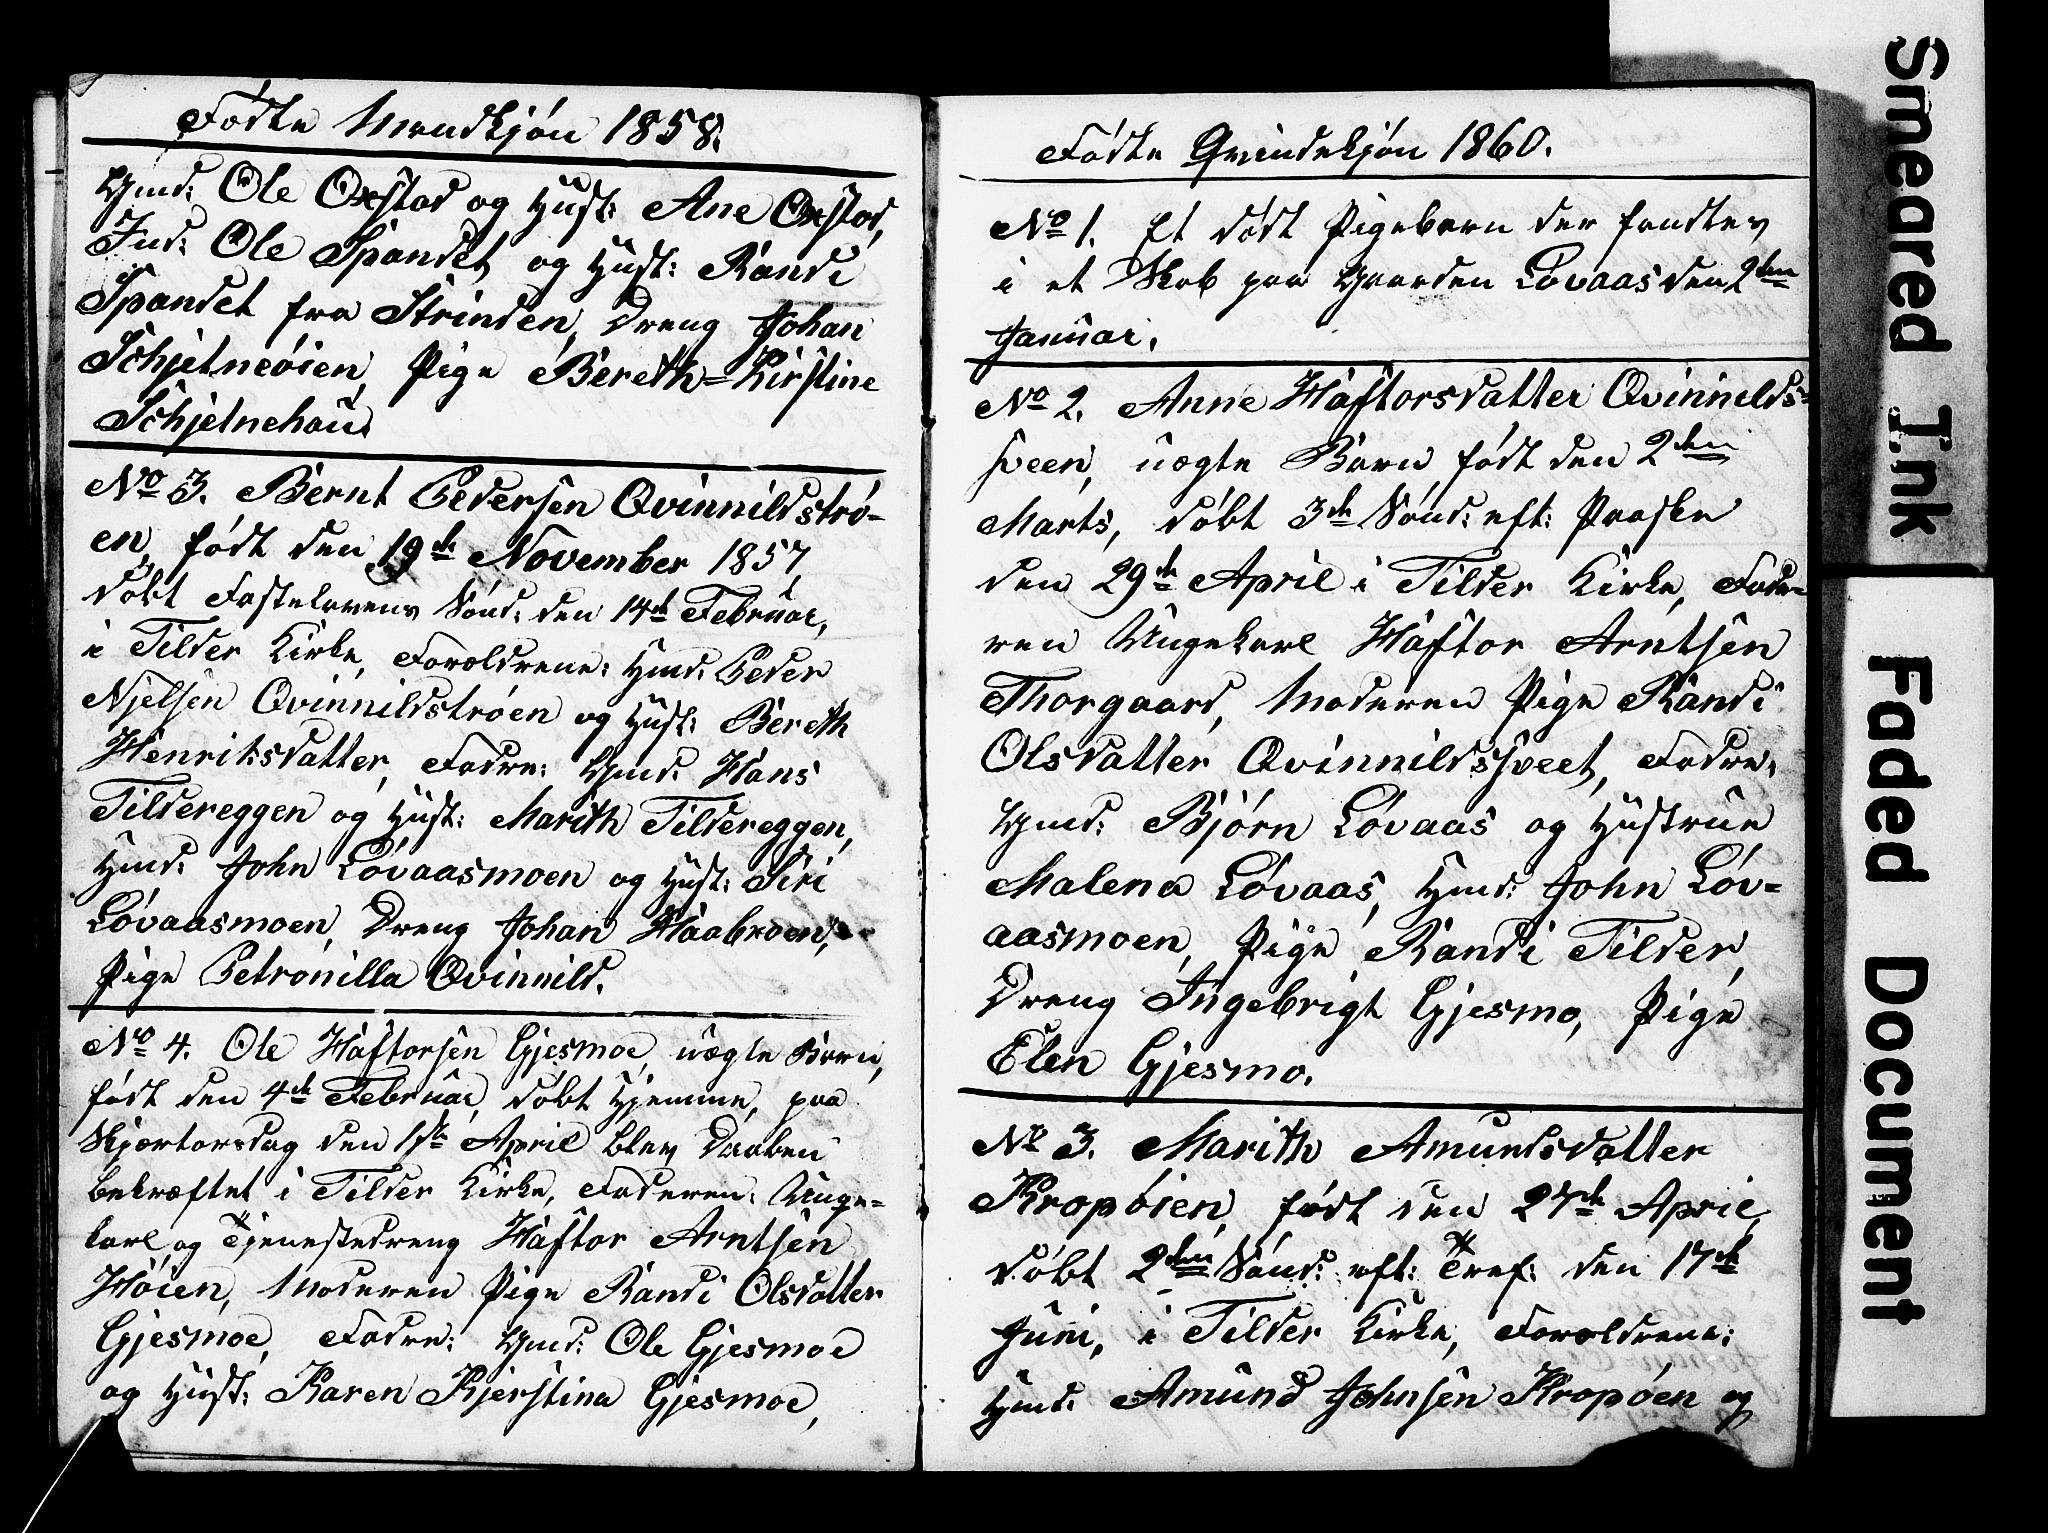 Födte Mandkjön 1858.
Gmd: Ole Oxstad og Hust: Ane Oxstad,
Ind: Ole Spandet og Hust: Randi
Spandet fra Strinden, Dreng Johan
Schjelneöien, Pige Bereth-Kirstine
Schjelnehau.
No 3. Bernt Pedersen Qvinnildströ-
en, födt den 19de November 1857,
döbt Fastelavens Sönd: den 14de Februar,
i Tilder Kirke, Forældrene: Hmd: Peder
Njelsen Qvinnildströen og Hust: Bereth
Henriksdatter, Fadre: Gmd: Hans
Tildereggen og Hust: Marith Tildereggen,
Hmd: John Lövaasmoen og Hust: Siri
Lövaasmoen, Dreng Johan Haabroen,
Pige Petronilla Qvinnild.
No 4. Ole Haftorsen Gjesmoe, uægte Barn,
födt den 4de Februar, döbt Hjemme, paa
Skjærtorsdag den 1ste April blev Daaben
bekræftet i Tilder Kirke, Faderen: Unge-
karl og Tjenestedreng Haftor Arntsen
Höien, Moderen Pige Randi Olsdatter
Gjesmoe, Fadre: Gmd: Ole Gjesmoe
og Hust: Karen Kjerstina Gjesmoe,
Födte Qvindekjön 1860.
No 1. Et dödt Pigebarn der fandtes
i et Skab paa Gaarden Lövaas den 2den
Januar.
No 2. Anne Haftorsdatter Qvinnilds-
sveen, uægte Barn födt den 2den
Marts, döbt 3de Sönd: eft: Paaske
den 29de April i Tilder Kirke, Fade-
ren Ungekarl Haftor Arntsen
Thorgaard, Moderen Pige Randi
Olsdatter Qvinnildssveet, Fadre:
Gmd: Björn Lövaas og Hustrue
Malena Lövaas, Hmd: John Löv-
aasmoen, Pige Randi Tilder,
Dreng Ingebrigt Gjesmo, Pige
Elen Gjesmo.
No 3. Marith Amundsdatter
Kropöien, födt den 27de April,
döbt 2den Sönd: eft: Tref: den 17de
Juni, i Tilder Kirke, Forældrene:
Hmd: Amund Johnsen Kropöen og
Smeared Ink
Faded Document